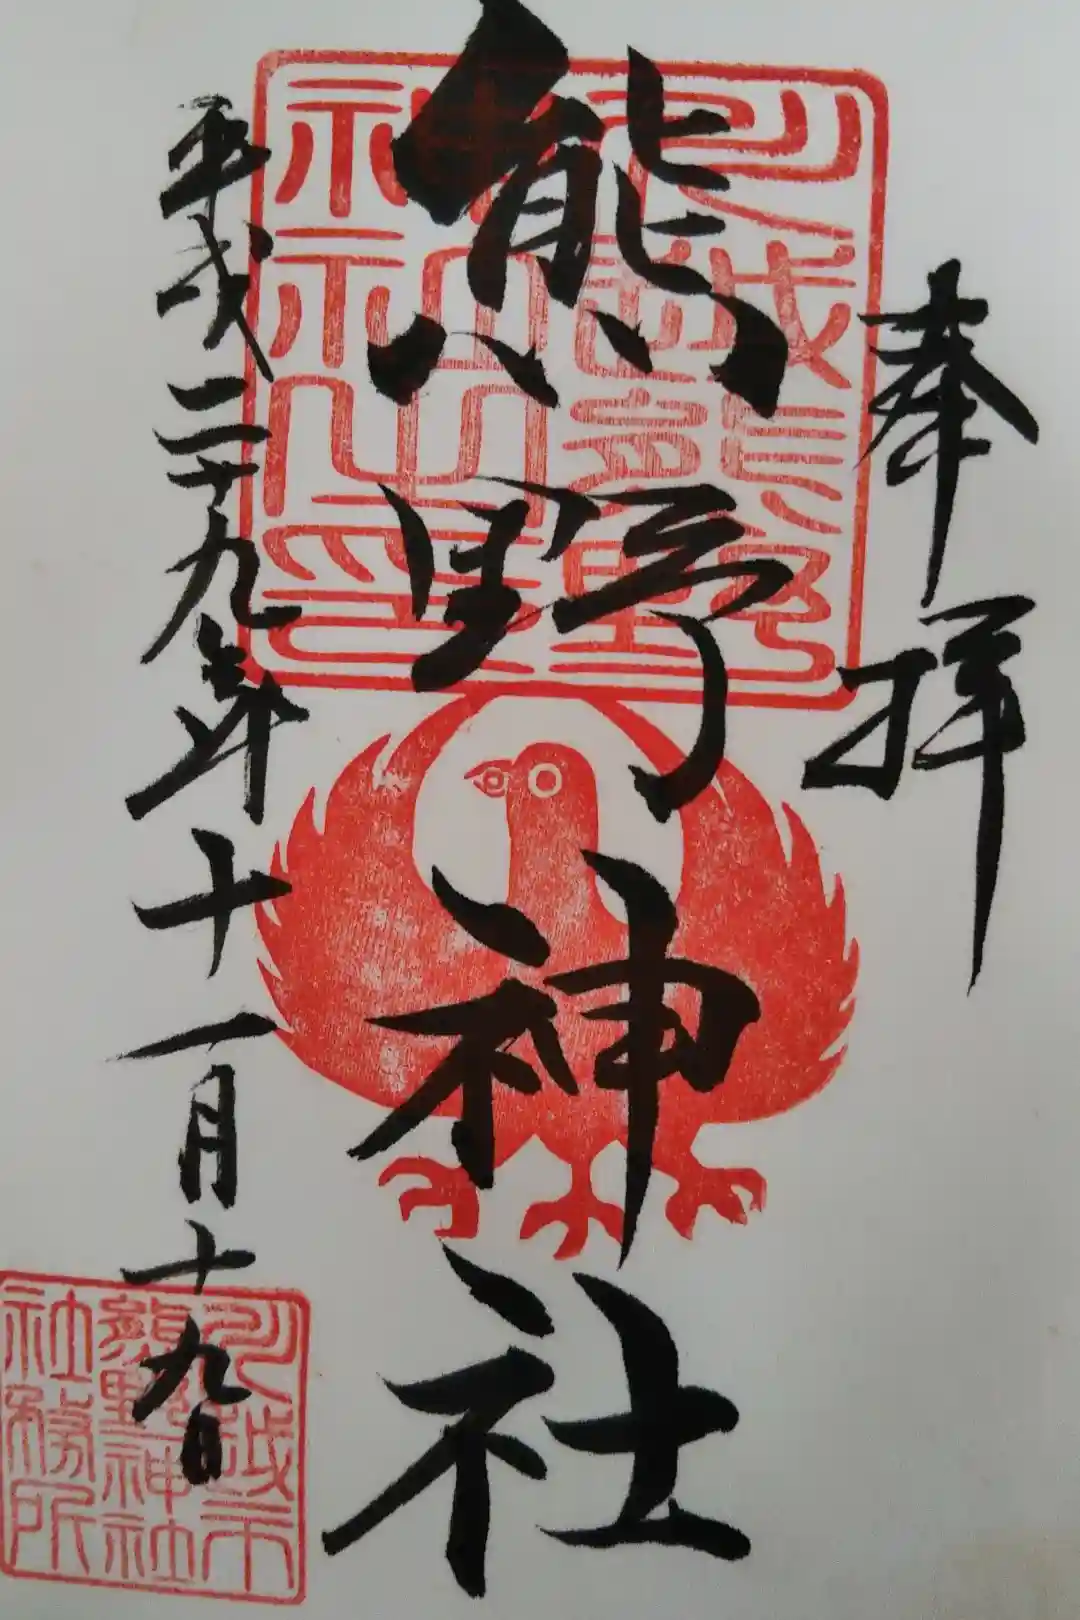 奉拝
川越熊野
神社之印
熊野神社
平成二十九年十一月十九日
川越市
熊野神社
社務所